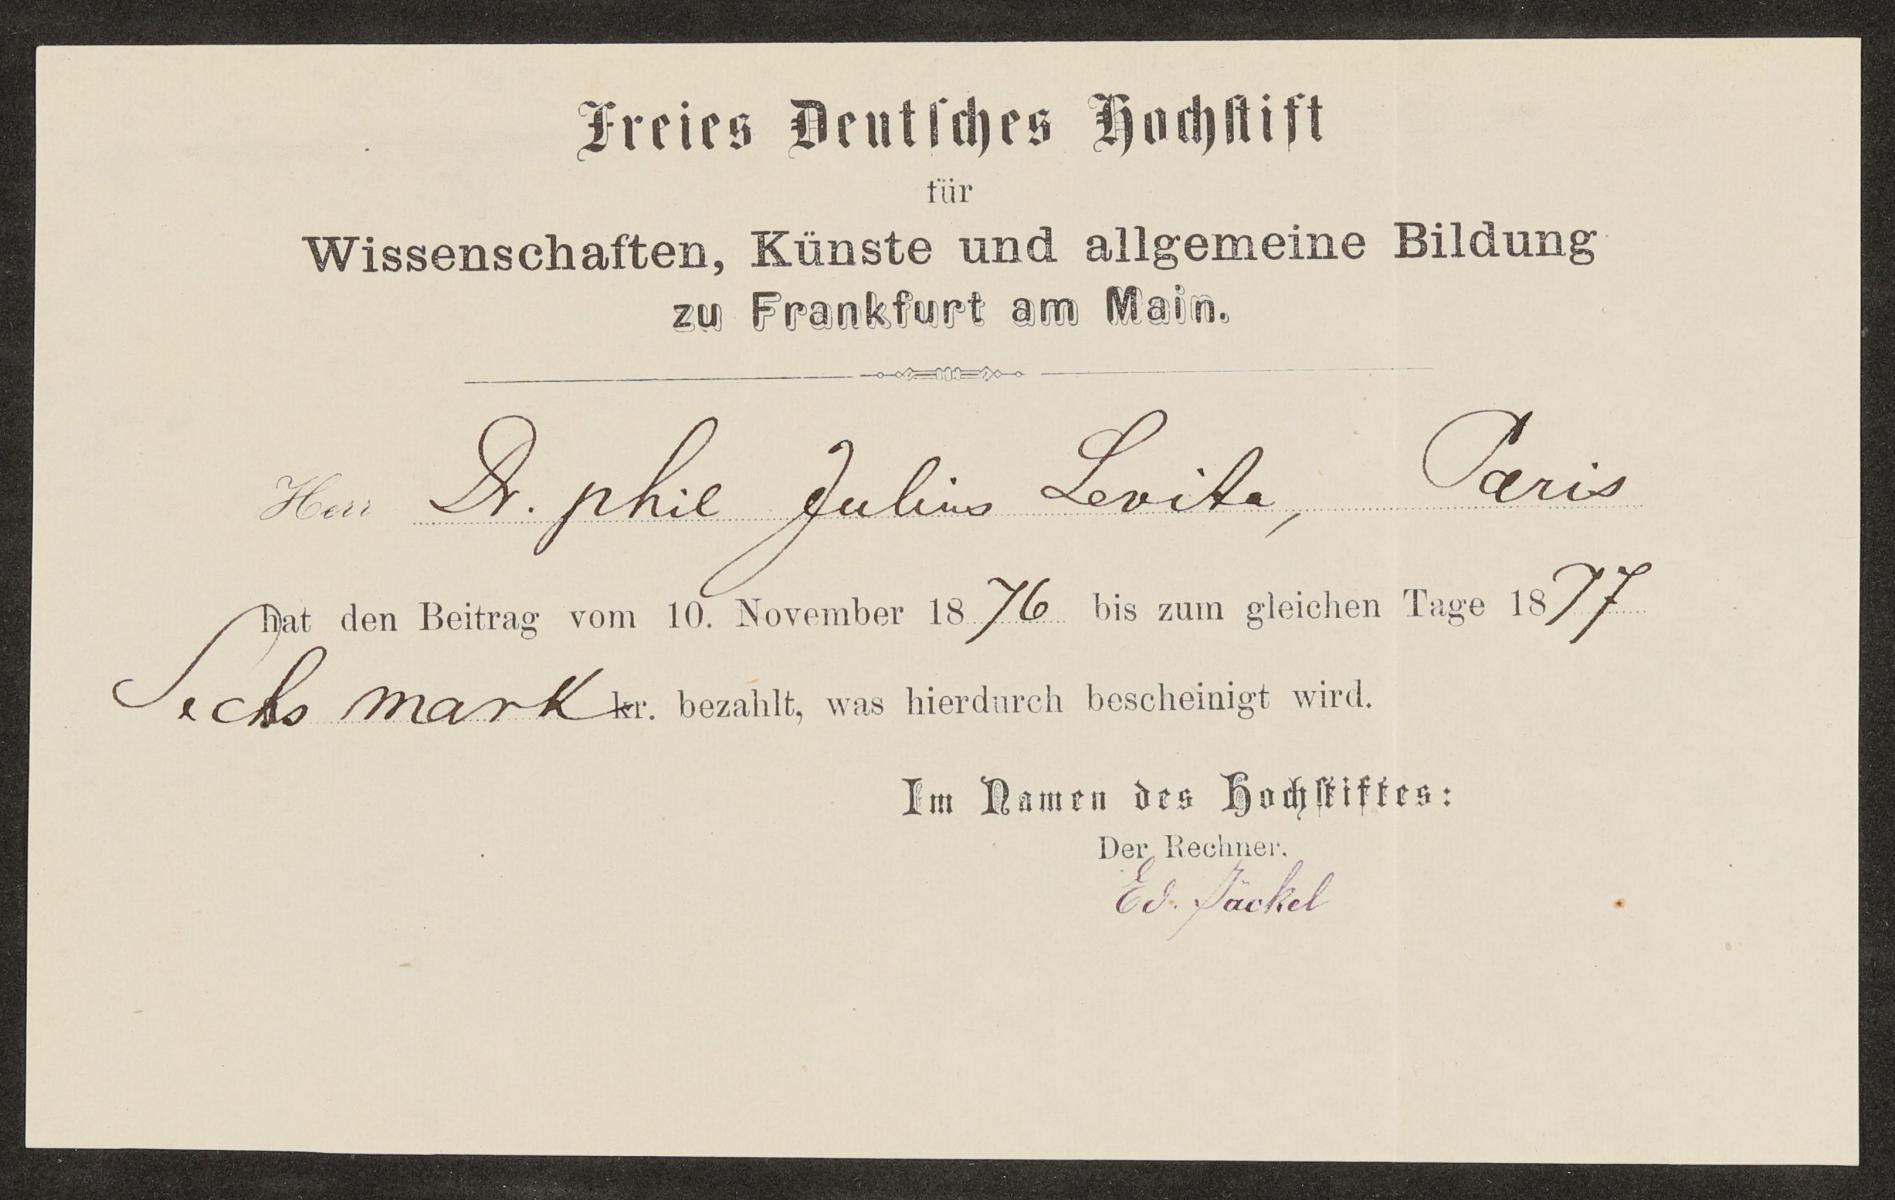 Freies Deutsches Hochstift
für
Wissenschaften, Künste und allgemeine Bildung
zu Frankfurt am Main.
Herr Dr. phil Julius Levita, Paris
hat den Beitrag vom 10. November 1876 bis zum gleichen Tage 1877
Sechs mark kr. bezahlt, was hierdurch bescheinigt wird.
Im Namen des Hochstiftes:
Der Rechner.
Ed. Jäckel